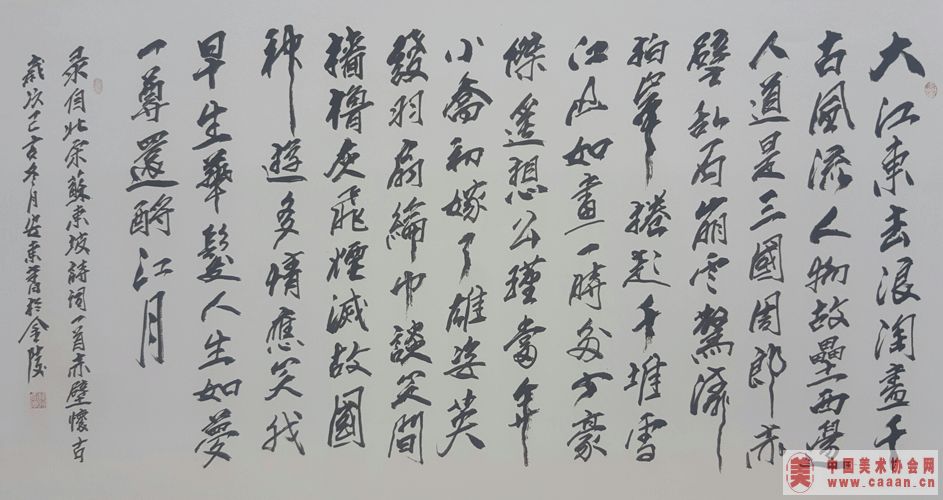 大江東去浪淘盡千
古風流人物故壘西邊
人道是三國周郎赤
壁乱石崩雲驚濤
拍岸捲起千堆雪
江山如畫一時多少豪
傑遙想公瑾當年
小喬初嫁了雄姿英
發羽扇綸巾談笑間
檣櫓灰飛煙滅故國
神遊多情應笑我
早生華髮人生如夢
一尊還酹江月
录自北宋蘇東坡詩詞一首赤壁懷古
歲次己亥冬月東於金陵
美 中国美术协会网
www.caaan.cn